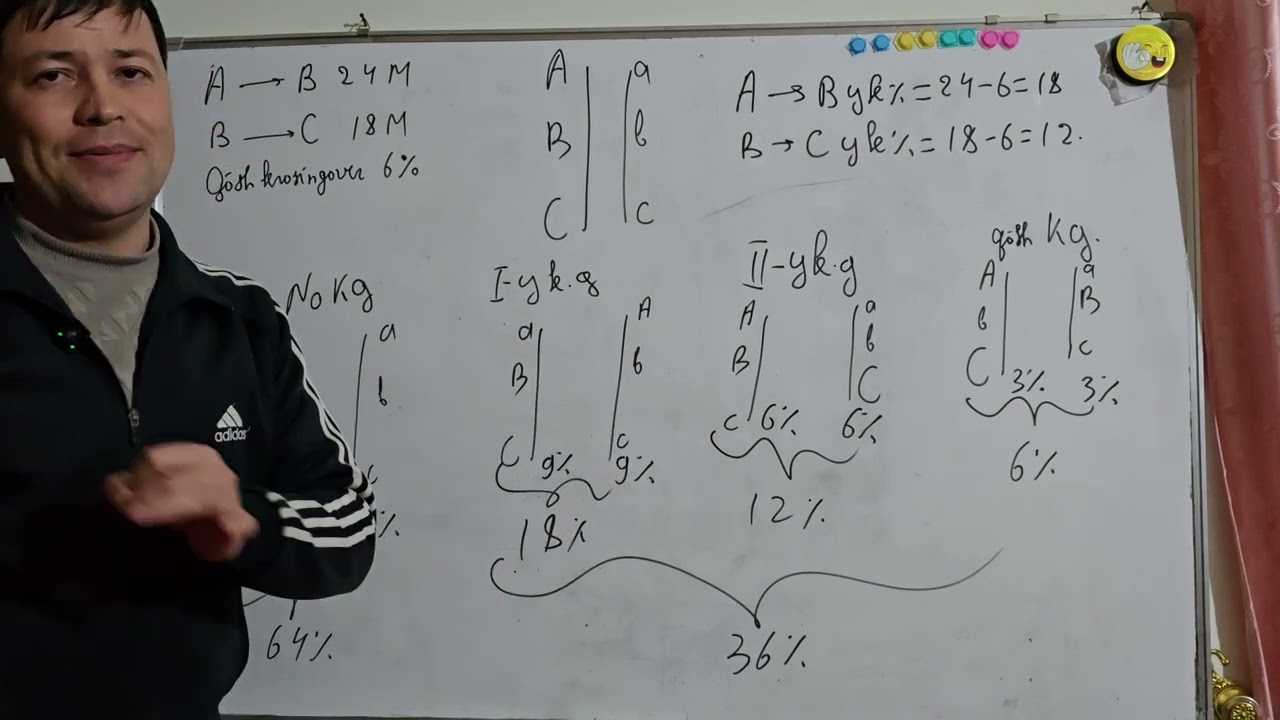 A → B 24 M
B → C 18 M
Qo'sh krosingover 6%
A a
B b
C c
A → B yk% = 24-6=18
B → C yk% = 18-6=12.
No Kg
a
b
64%
I-yk.g
a A
B b
C c
9% 9%
18%
II-yk.g
A a
B b
c C
6% 6%
12%
qo'sh Kg.
A a
b B
C c
3% 3%
6%
36%
adidas